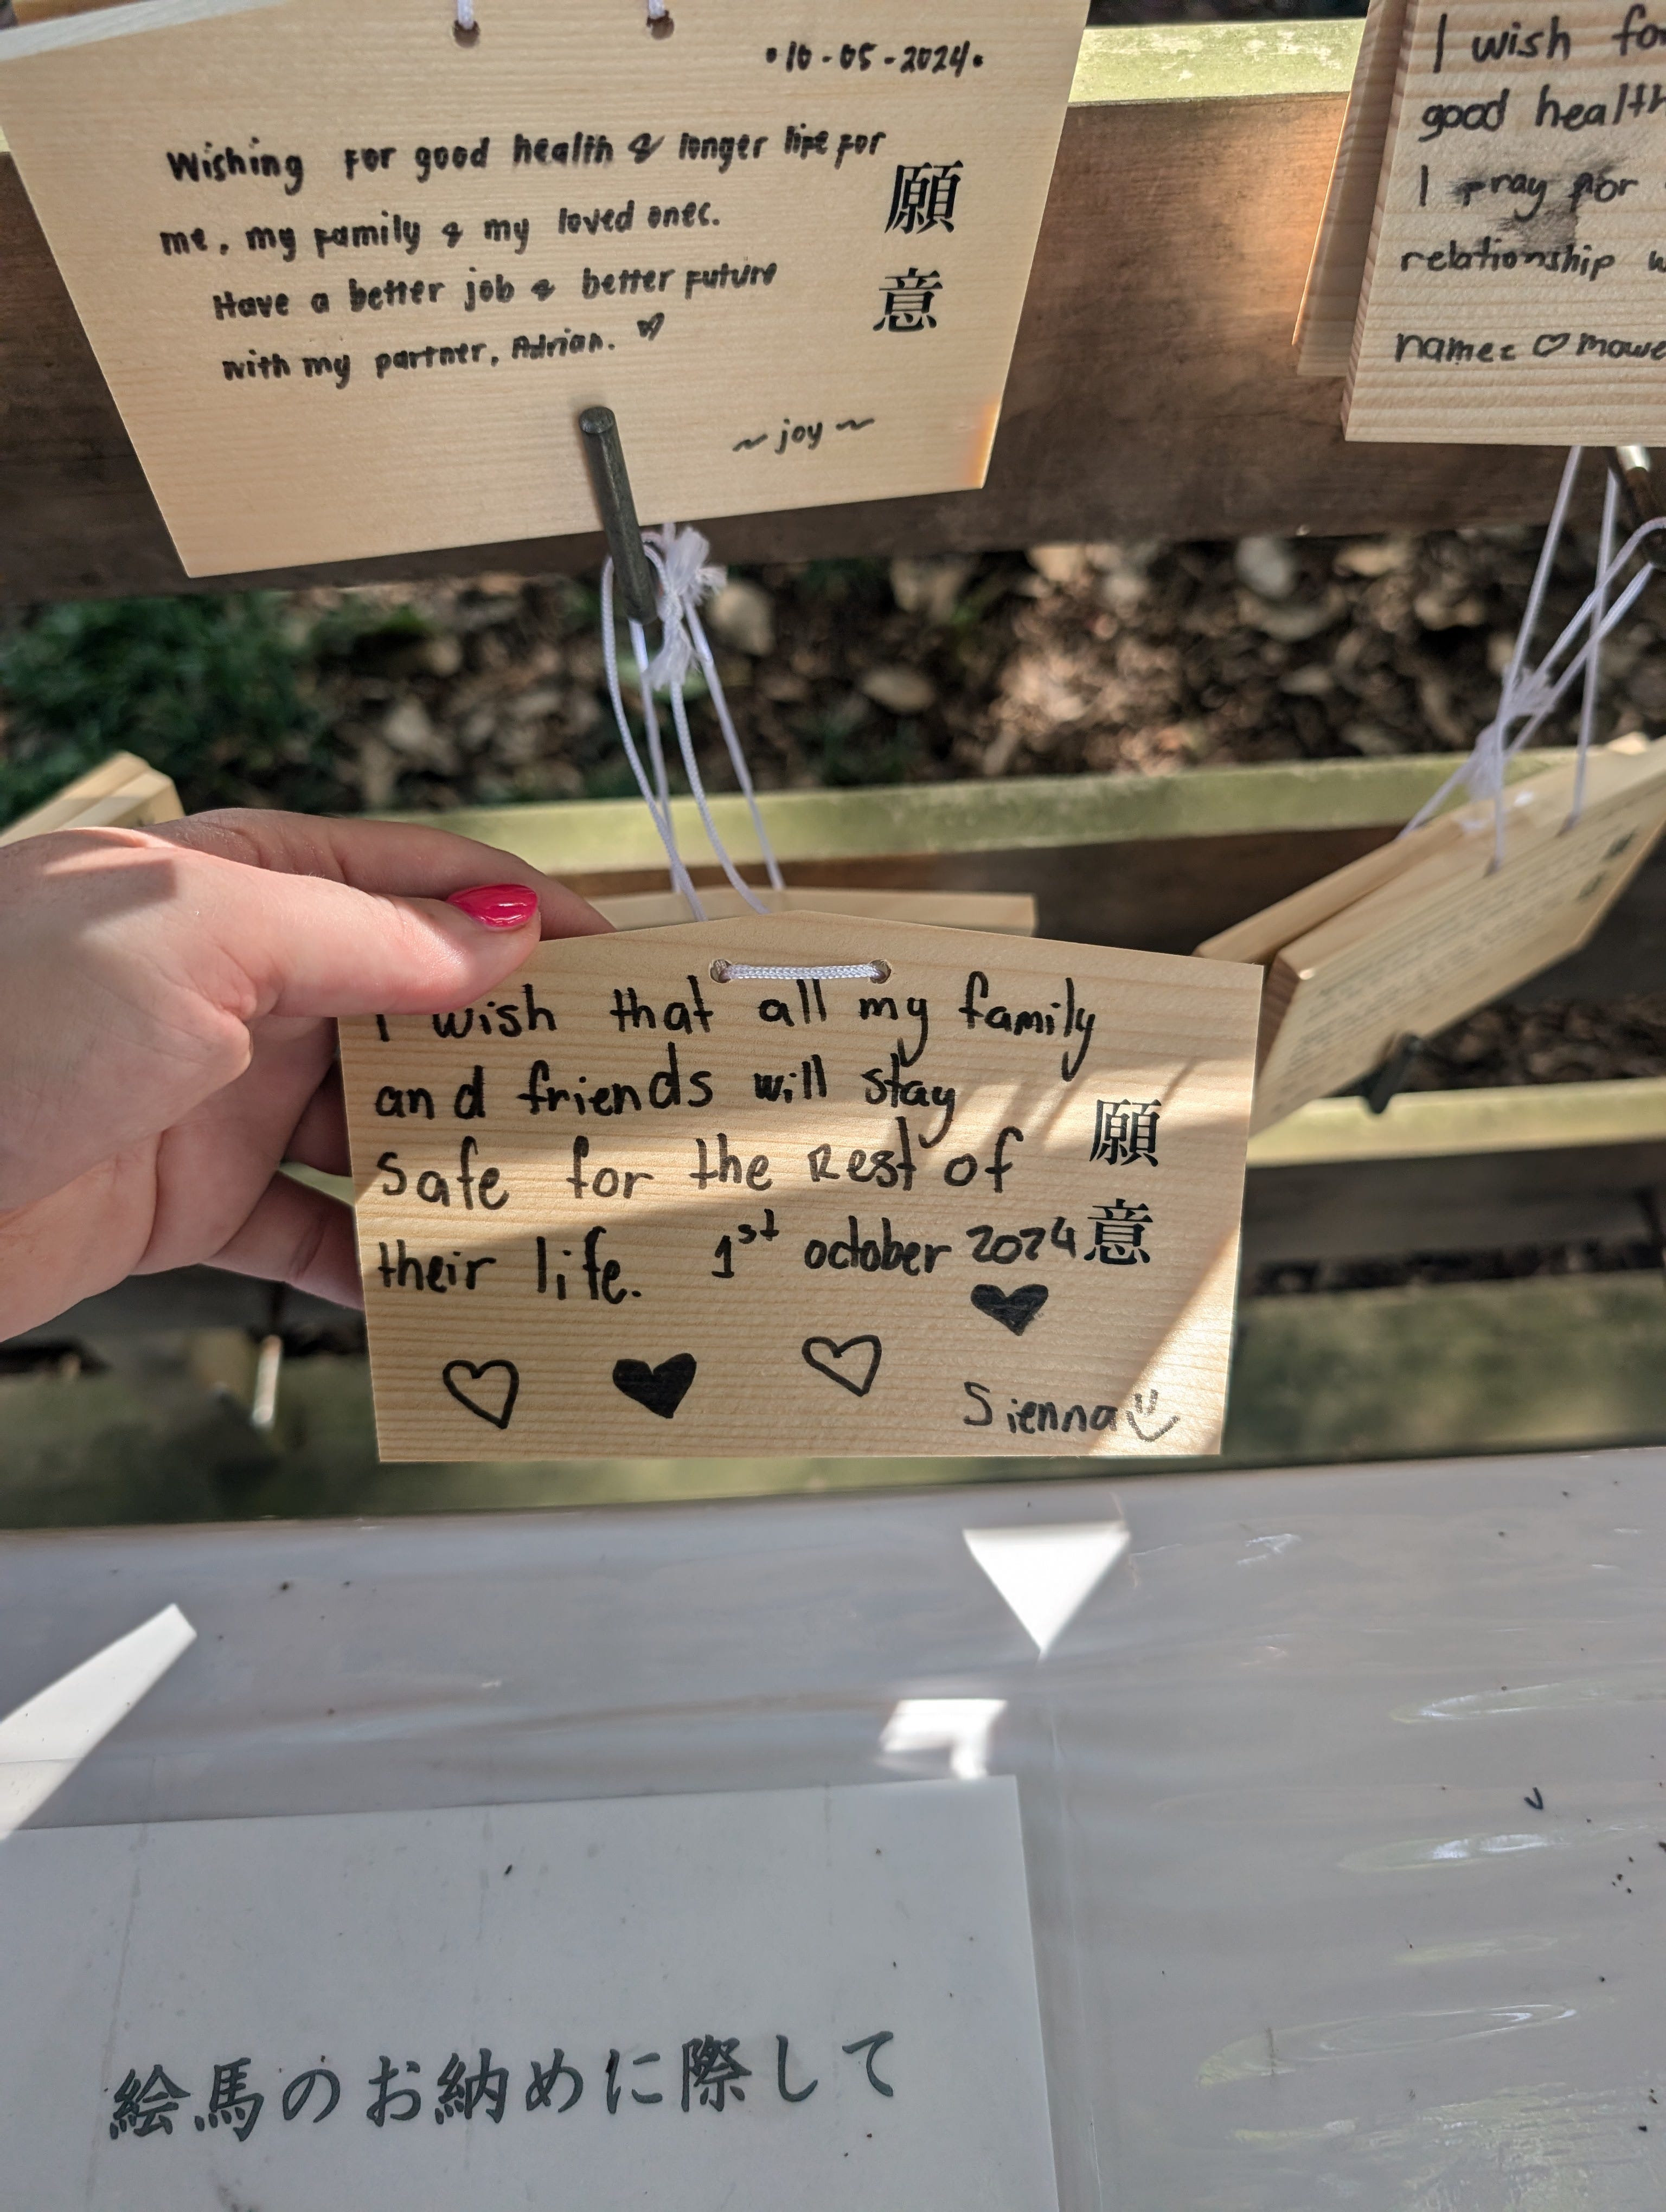 •10-05-2024•
Wishing for good health & longer life for
me, my family & my loved ones.
Have a better job & better future
with my partner, Adrian.
~ joy ~
願意
I wish
good health
I pray for
relationship
I wish that all my family
and friends will stay
safe for the Rest of
their life. 1st october 2024
Sienna
願意
絵馬のお納めに際して